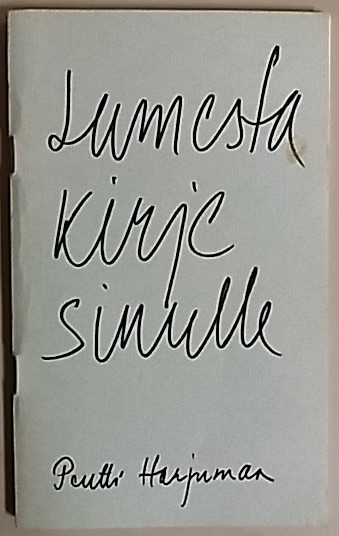 Lumesta
kirje
sinulle
Pentti Harjumaa